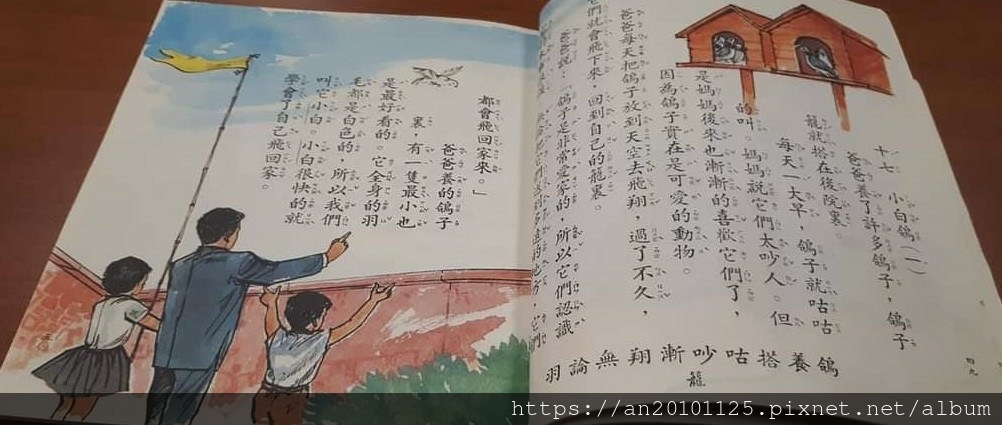 十七 小白鴿(一)
爸爸養了許多鴿子,鴿子
籠就搭在後院裏。
每天一大早,鴿子就咕咕
的叫。媽媽說它們太吵人。但
是媽媽後來也漸漸的喜歡它們了,
因為鴿子實在是可愛的動物。
爸爸每天把鴿子放到天空去飛翔,過了不久,
它們就會飛下來,回到自己的籠裏。
爸爸說:「鴿子是非常愛家的,所以它們認識
到多遠的地方,它們
鴿養搭咕吵漸翔無論羽
籠
四九
都會飛回家來。」
爸爸養的鴿子
裏,有一隻最小也
是最好看的。它全身的羽
毛都是白色的,所以我們
叫它小白。小白很快的就
學會了自己飛回家。
五〇
https://an20101125.pixnet.net/album